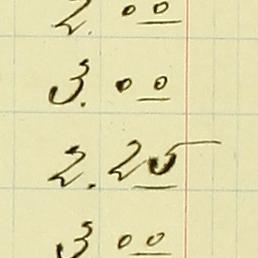 2.00
3.00
2.25
3.00